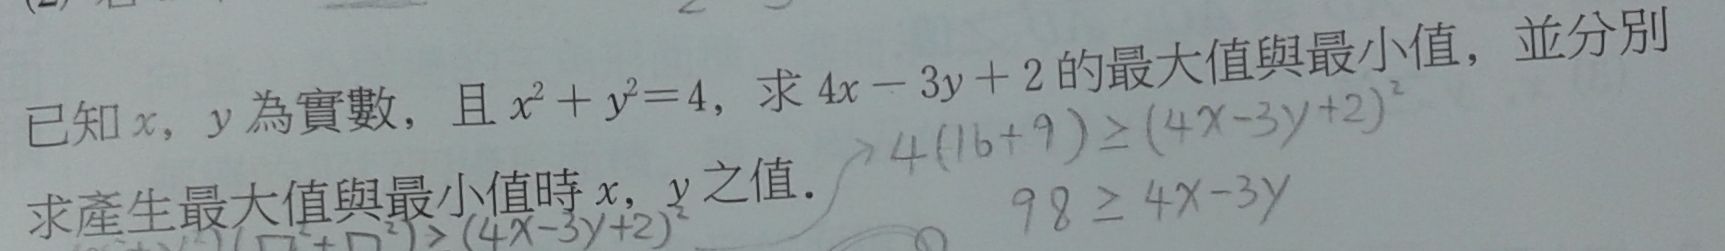 已知 x，y 為實數，且 x²＋y²＝4，求 4x－3y＋2 的最大值與最小值，並分別
4(16+9)≥(4x-3y+2)²
求產生最大值與最小值時 x，y 之值．
98≥4x-3y
(4x-3y+2)²